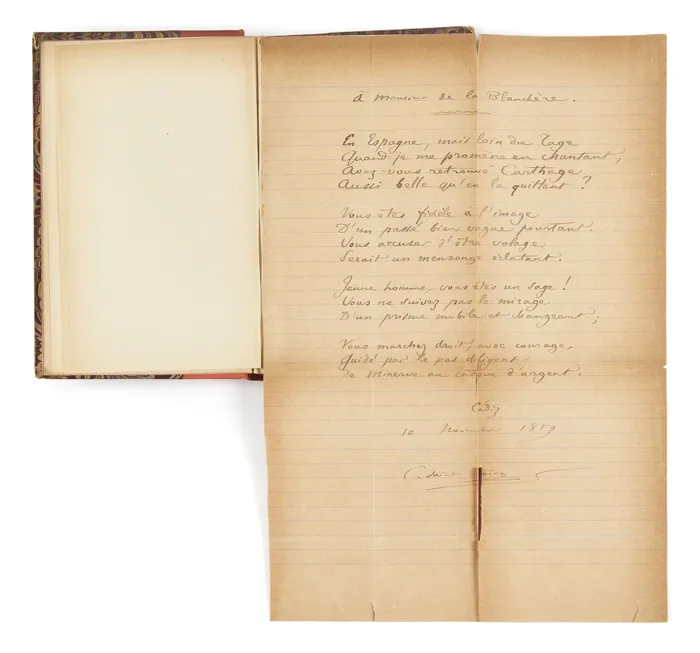 à Monsieur de la Blanchère.
En Espagne, mais loin du Tage
Quand je me promène en chantant,
Avez-vous retrouvé Carthage
Aussi belle qu'en la quittant ?
Vous êtes fidèle à l'image
D'un passé bien vague pourtant.
Vous accuser d'être volage
Serait un mensonge éclatant.
Jeune homme, vous êtes un sage !
Vous ne suivez pas le mirage
D'un prisme mobile et changeant ;
Vous marchez droit, avec courage,
Guidé par le pas diligent
De Minerve au casque d'argent.
Cadix
10 Novembre
C. Saint